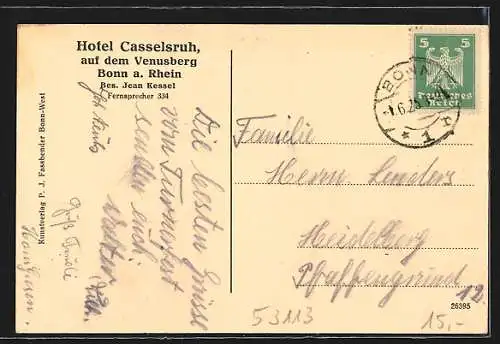 Hotel Casselsruh,
auf dem Venusberg
Bonn a. Rhein
Bes. Jean Kessel
Fernsprecher 334
Kunstverlag P. J. Fassbender Bonn-West
Die besten Grüsse
vom Turnfest
senden euch
Walter
5 5
Deutsches
Reich
BONN
* 1
Familie
Herrn
Heidelberg
Pfaffengrund
12.
26395
53113
15,-